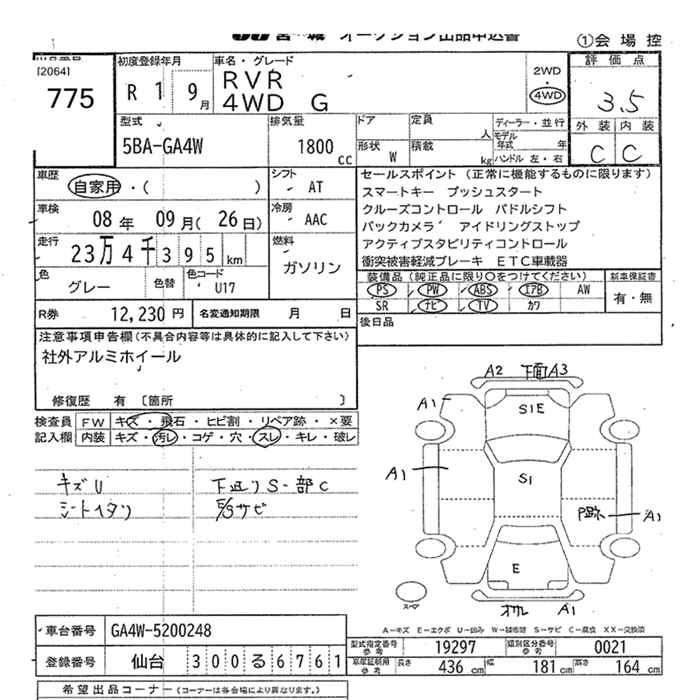 宮城 オークション出品申込書
①会場控
[2064]
775
初度登録年月
R 1 9月
車名・グレード
RVR
4WD G
2WD
・
4WD
評価点
3.5
外装 内装
C C
型式
5BA-GA4W
排気量
1800 cc
ドア
定員 人
形状 W
積載 kg
ディーラー・並行
モデル年式 年
ハンドル 左・右
車歴
自家用・( )
シフト
AT
車検
08年 09月(26日)
冷房
AAC
走行
23万4千395km
燃料
ガソリン
色
グレー
色替
色コード
U17
R券 12,230円
名変通知期限 月 日
セールスポイント (正常に機能するものに限ります)
スマートキー プッシュスタート
クルーズコントロール パドルシフト
バックカメラ アイドリングストップ
アクティブスタビリティコントロール
衝突被害軽減ブレーキ ETC車載器
装備品(純正品に限り○をつけてください)
PS PW ABS エアB AW
SR ナビ TV カワ
新車保証書
有・無
後日品
注意事項申告欄(不具合内容等は具体的に記入して下さい)
社外アルミホイール
修復歴 有 〔箇所 〕
検査員記入欄
FW キズ・飛石・ヒビ割・リペア跡・×要
内装 キズ・汚レ・コゲ・穴・スレ・キレ・破レ
キズU
シートイタツ
下廻りS-部C
F/Sサビ
A2 下面A3
A1
S1E
A1
S1
P跡 A1
E
オカレ A1
スペア
A-キズ E-エクボ U-凹み W-補修跡 S-サビ C-腐食 XX-交換済
車台番号 GA4W-5200248
登録番号 仙台 300る6761
型式指定番号参考 19297
類別区分番号参考 0021
車庫証明用参考 長さ 436cm 幅 181cm 高さ 164cm
希望出品コーナー(コーナーは各会場により異なります。)